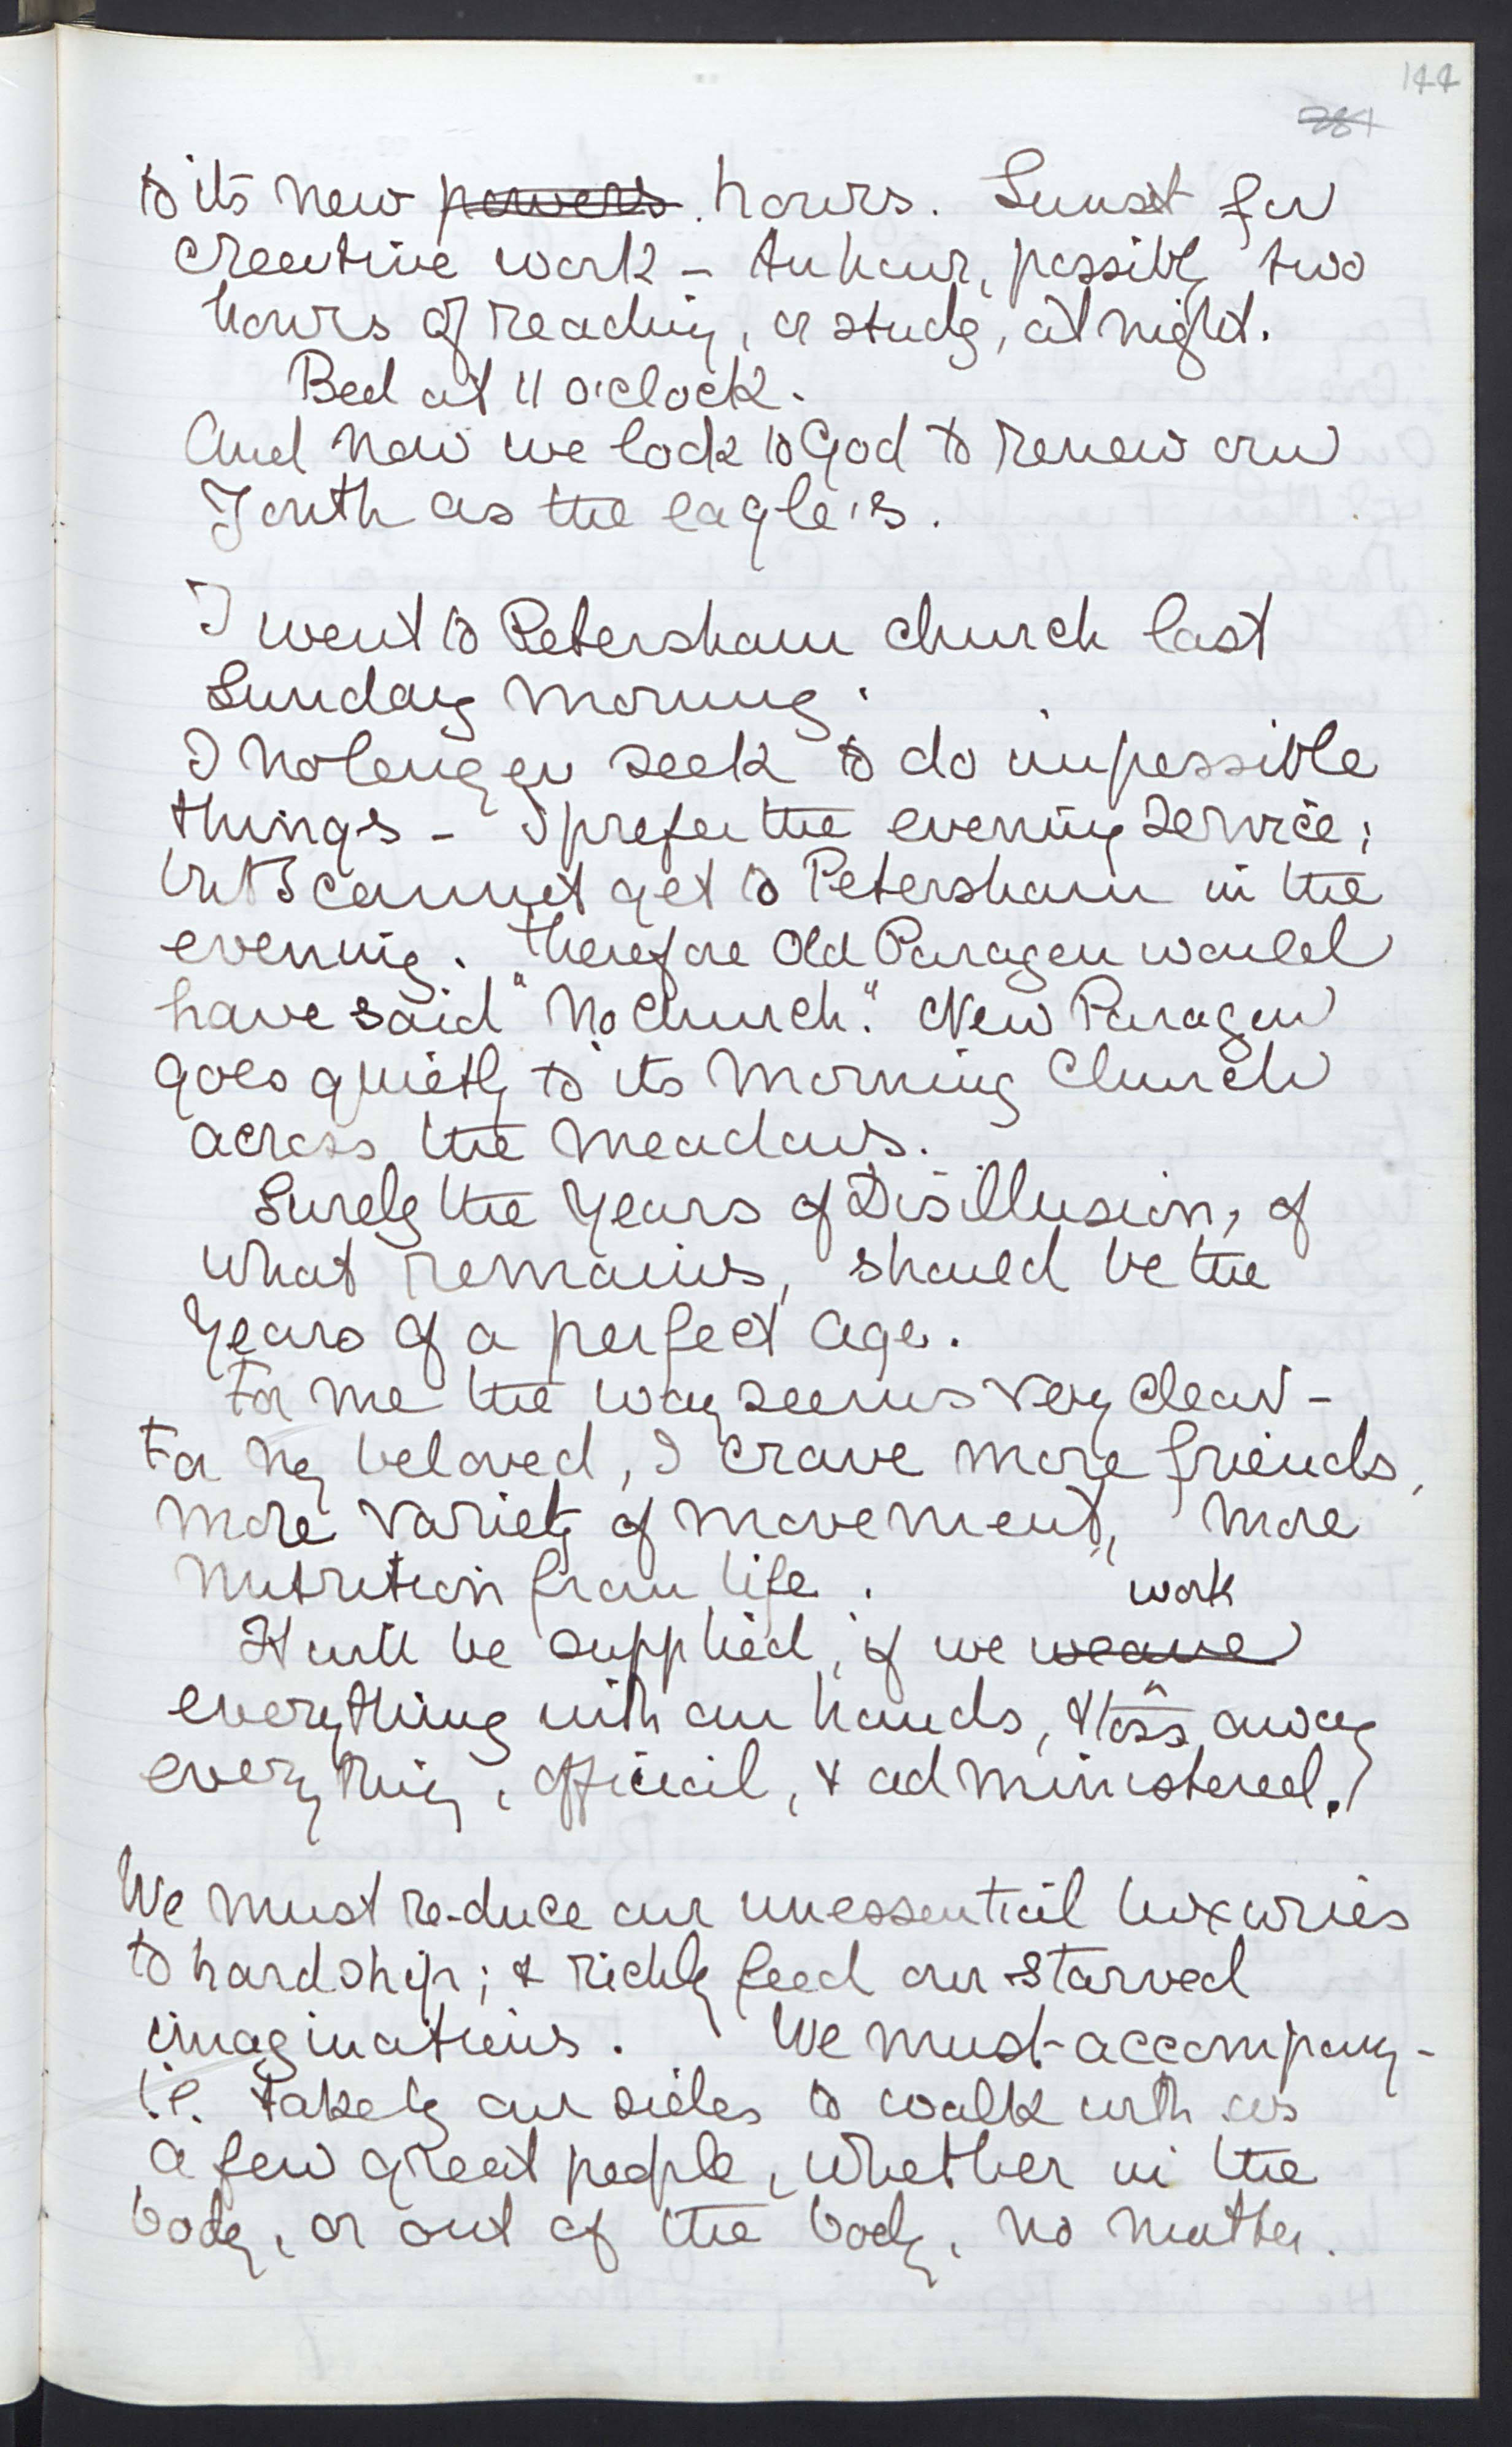 144
281
to its new powers. hours. Sunset for
creative work – An hour, possibly two
hours of reading, or study, at night.
Bed at 11 o'clock.
And now we look to God to renew our
Youth as the eagle's.
I went to Petersham church last
Sunday morning.
I no longer seek to do impossible
things – I prefer the evening service;
but I cannot get to Petersham in the
evening. Therefore Old Paragon would
have said "No Church." New Paragon
goes quietly to its morning Church
across the meadows.
Surely the years of Disillusion, of
what remains, should be the
years of a perfect age.
For me the way seems very clear –
For my beloved, I crave more friends,
more variety of movement, more
nutrition from life.
work
It will be supplied, if we weave
everything with our hands, & toss away
everything, official, & administered.
We must re-duce our unessential luxuries
to hardship; & richly feed our starved
imaginations. We must accompany –
i.e. take by our sides to walk with us
a few great people, whether in the
body, or out of the body, no matter.